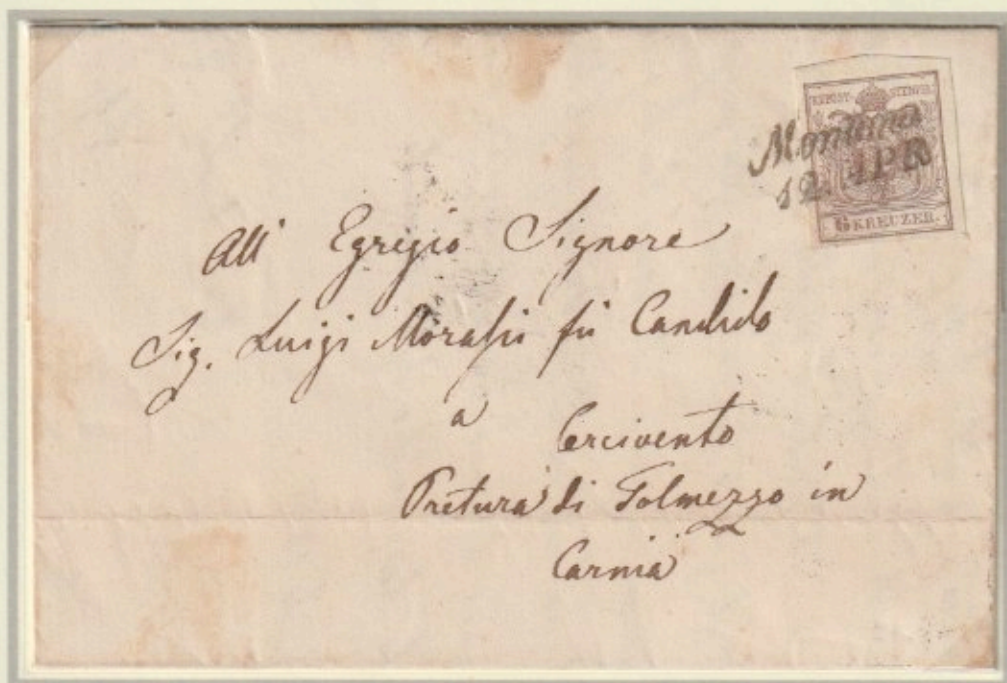 KKPOST-STEMPEL
12 APR
6 KREUZER.
All' Egregio Signore
Sig. Luigi Morassi fù Candido
a
Cercivento
Pretura di Tolmezzo in
Carnia